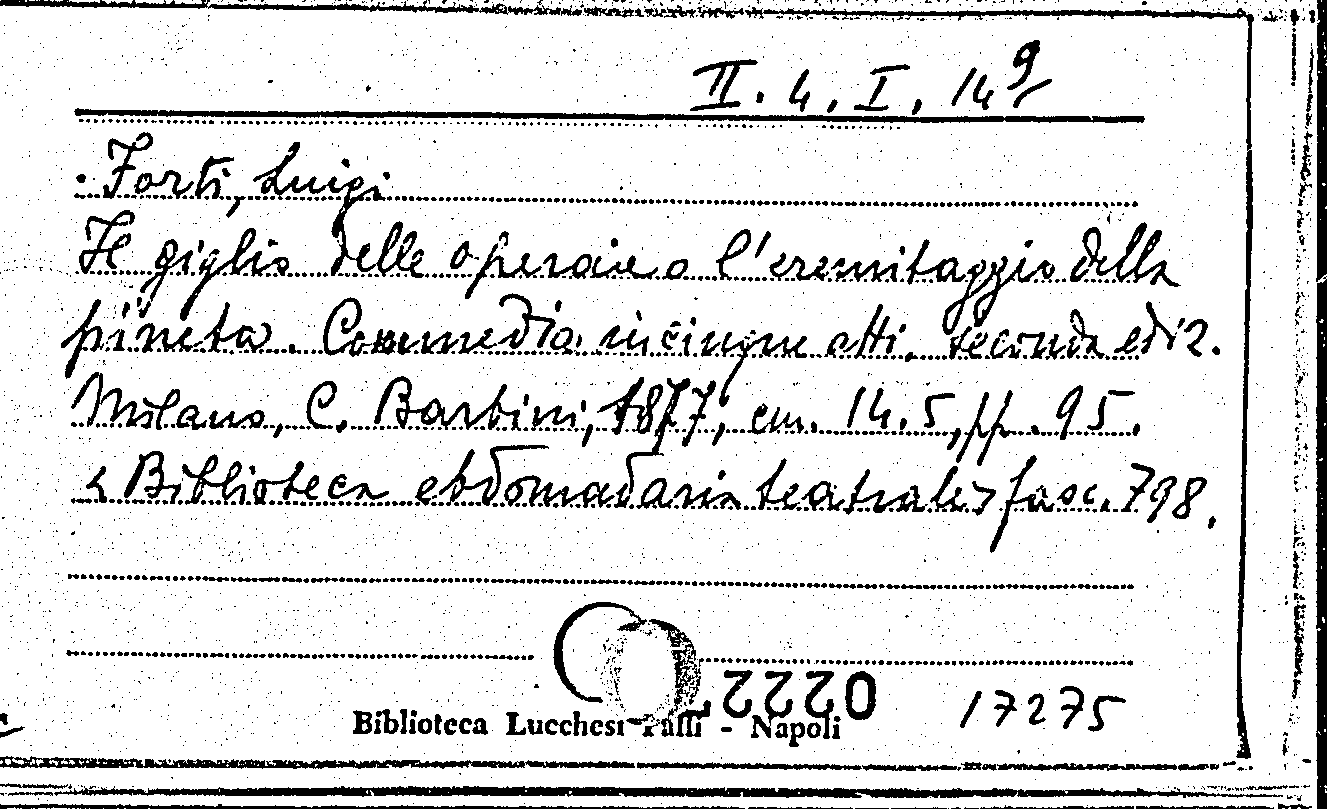 II. 4. I. 14 9/
Forti, Luigi
Il giglio delle operaie o l'eremitaggio della
pineta. Commedia in cinque atti. seconda ediz.
Milano, C. Barbini, 1877, cm. 14.5, pp. 95.
< Biblioteca ebdomadaria teatrale> fasc. 798.
0222
17275
Biblioteca Lucchesi-Palli - Napoli